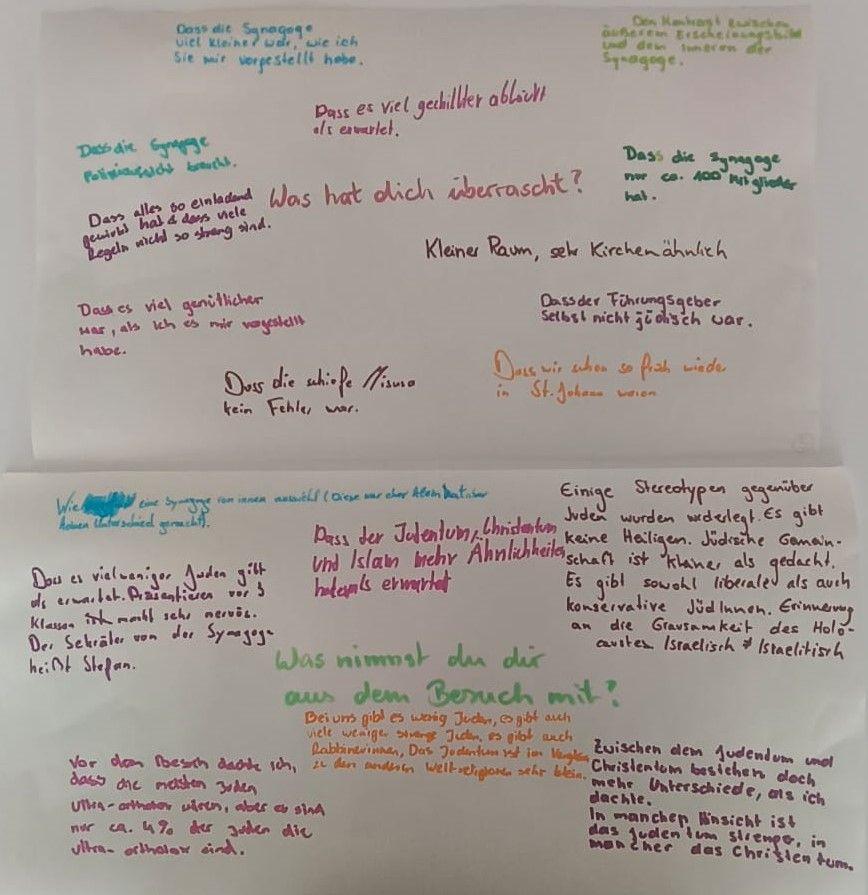 Dass die Synagoge
viel kleiner war, wie ich
Sie mir vorgestellt habe.
Den Kontrast zwischen
äußerem Erscheinungsbild
und dem Inneren der
Synagoge.
Dass es viel gechillter abläuft
als erwartet.
Dass die Synagoge
Polizeiaufsicht braucht.
Dass die Synagoge
nur ca. 100 Mitglieder
hat.
Was hat dich überrascht?
Dass alles so einladend
gewirkt hat & dass viele
Regeln nicht so streng sind.
Kleiner Raum, sehr Kirchenähnlich
Dass es viel gemütlicher
war, als ich es mir vorgestellt
habe.
Dass der Führungsgeber
Selbst nicht jüdisch war.
Dass die schiefe Misusa
kein Fehler war.
Dass wir schon so früh wieder
in St. Johann waren
Wie eine Synagoge von innen aussieht (Diese war eher
keinen Unterschied gemacht).
Dass der Judentum, Christentum
und Islam mehr Ähnlichkeiten
haben als erwartet
Einige Stereotypen gegenüber
Juden wurden widerlegt. Es gibt
keine Heiligen. Jüdische Gemein-
schaft ist kleiner als gedacht.
Es gibt sowohl liberale als auch
konservative JüdInnen. Erinnerung
an die Grausamkeit des Holo-
caustes. Israelisch ≠ Israelitisch
Dass es viel weniger Juden gibt
als erwartet. Präsentieren vor 3
Klassen macht sehr nervös.
Der von der Synagoge
heißt Stefan.
Was nimmst du dir
aus dem Besuch mit?
Bei uns gibt es wenig Juden, es gibt auch
viele weniger strenge Juden, es gibt auch
Rabbinerinnen, Das Judentum ist im Vergleich
zu den anderen Weltreligionen sehr klein.
Vor dem Besuch dachte ich,
dass die meisten Juden
ultra-orthodox wären, aber es sind
nur ca. 4% der Juden die
ultra-orthodox sind.
Zwischen dem Judentum und
Christentum bestehen doch
mehr Unterschiede, als ich
dachte.
In mancher Hinsicht ist
das Judentum strenger, in
mancher das Christentum.